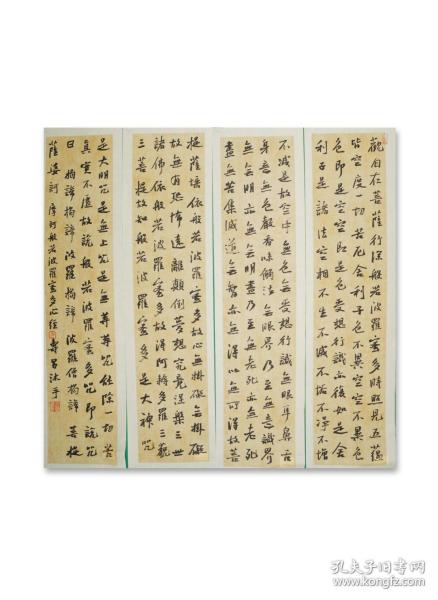 觀自在菩薩行深般若波羅蜜多時照見五蘊
皆空度一切苦厄舍利子色不異空空不異色
色即是空空即是色受想行識亦復如是舍
利子是諸法空相不生不滅不垢不淨不增
不減是故空中無色無受想行識無眼耳鼻舌
身意無色聲香味觸法無眼界乃至無意識界
無無明亦無無明盡乃至無老死亦無老死
盡無苦集滅道無智亦無得以無所得故菩
提薩埵依般若波羅蜜多故心無掛礙無掛礙
故無有恐怖遠離顛倒夢想究竟涅槃三世
諸佛依般若波羅蜜多故得阿耨多羅三藐
三菩提故知般若波羅蜜多是大神咒
是大明咒是無上咒是無等等咒能除一切苦
真實不虛故說般若波羅蜜多咒即說咒
曰揭諦揭諦波羅揭諦波羅僧揭諦菩提
薩婆訶 摩訶般若波羅蜜多心經
孔夫子旧书网